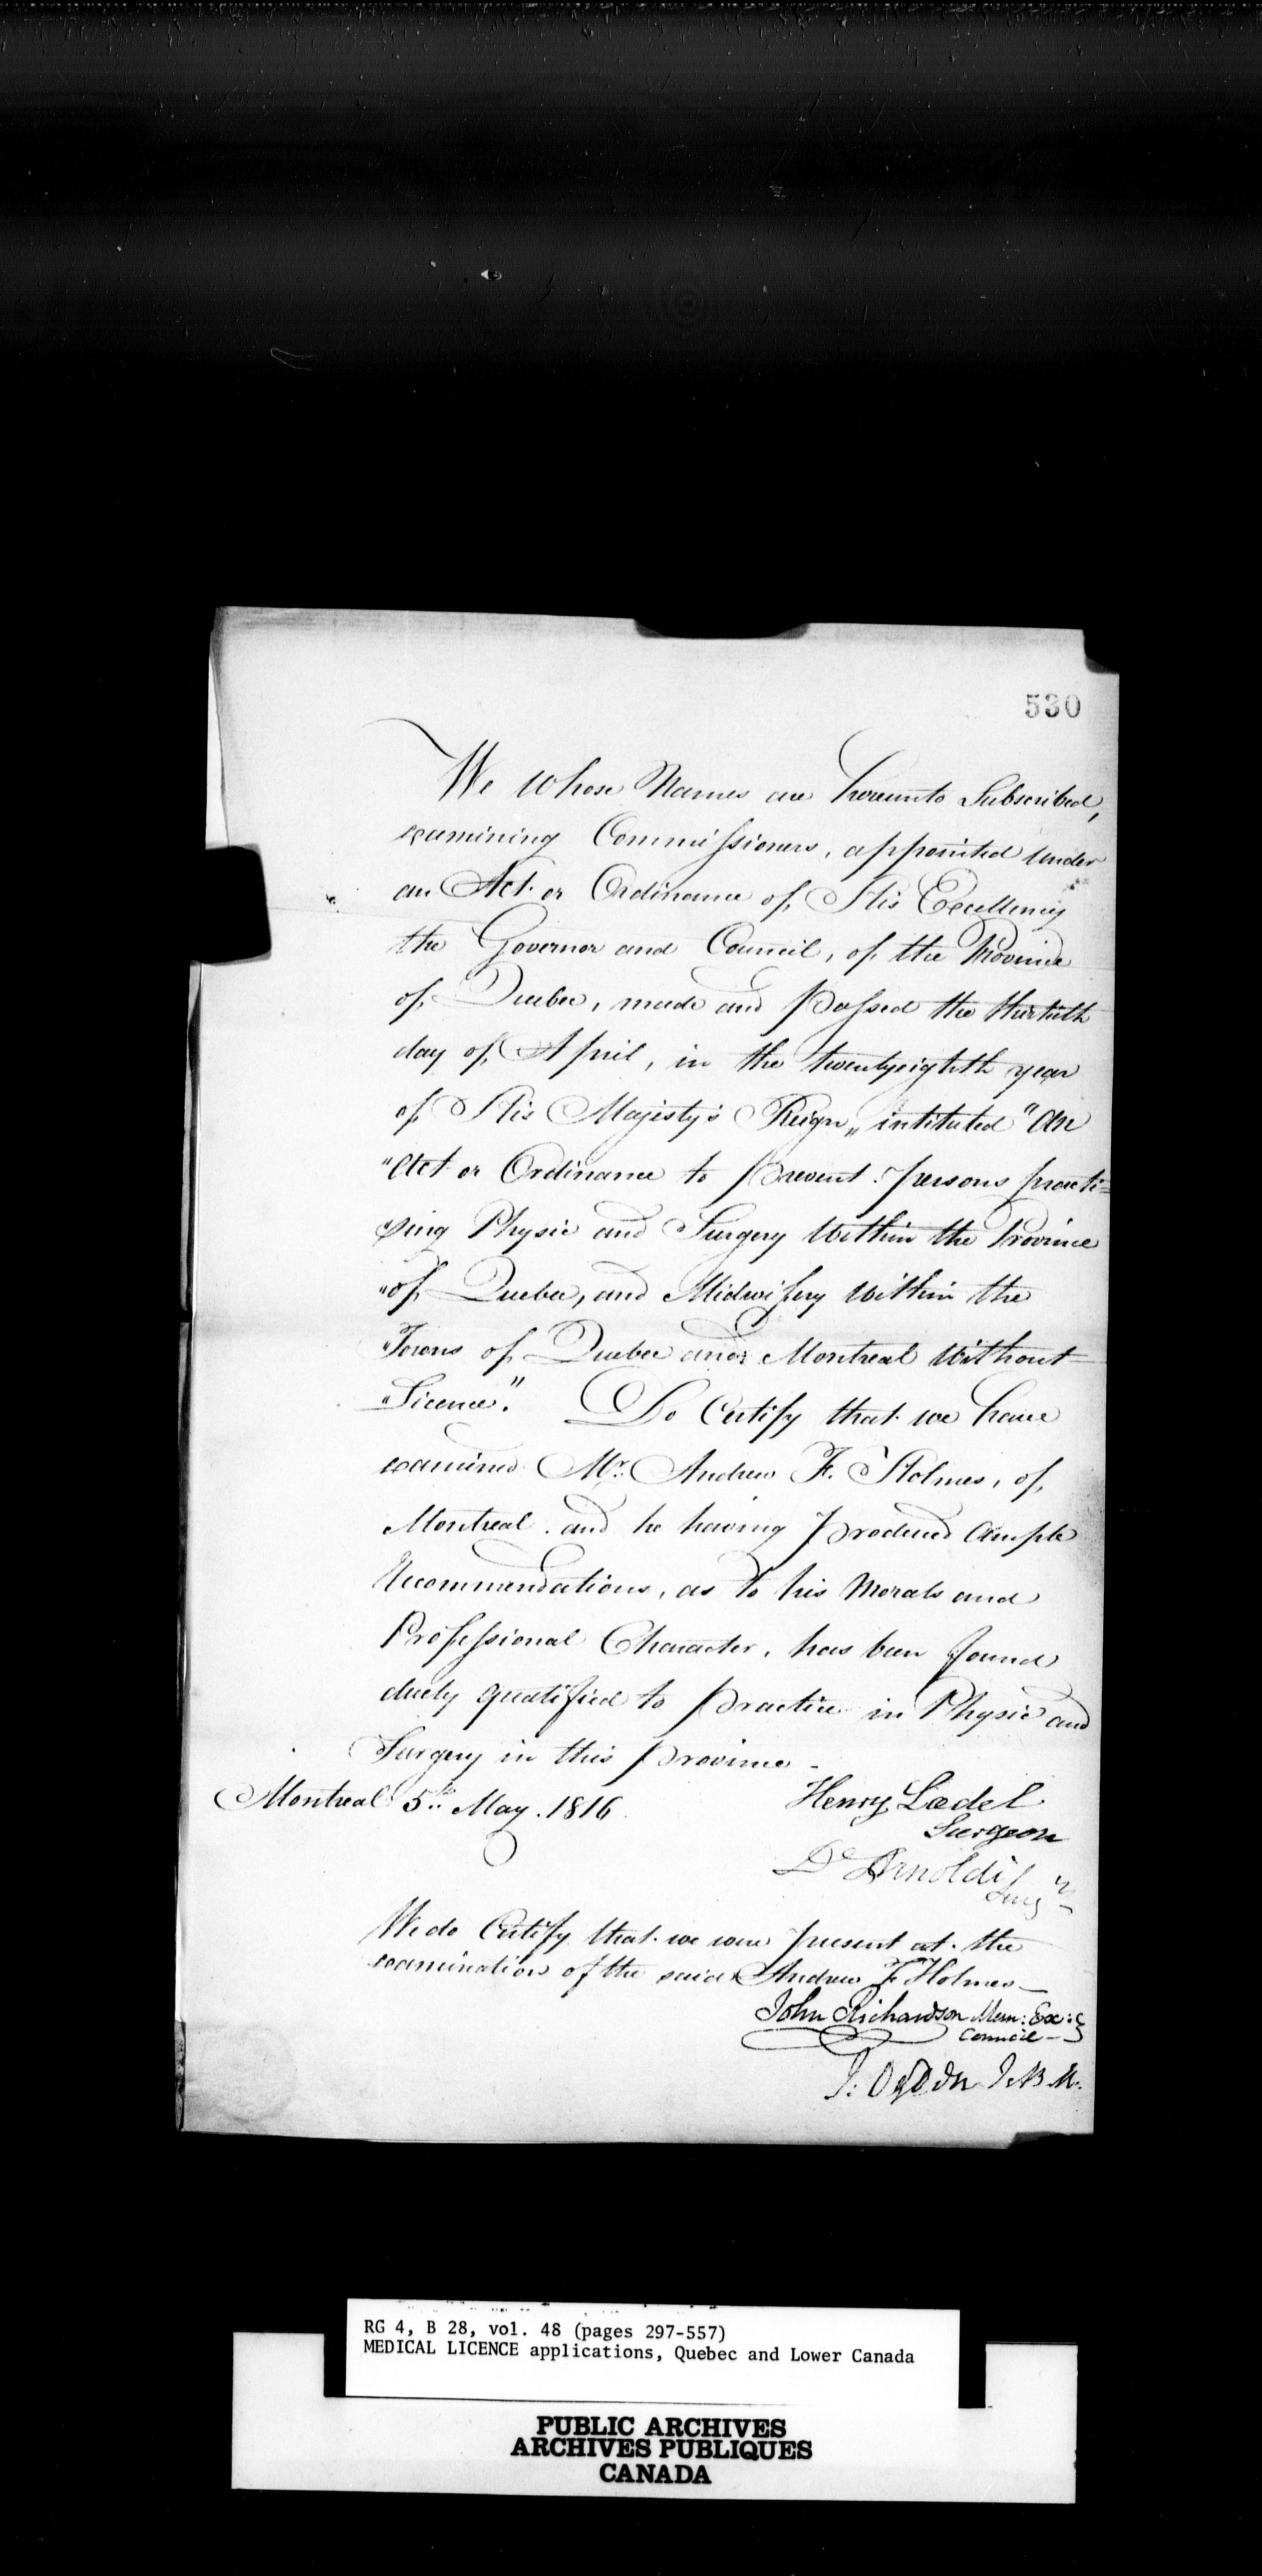 530
We whose Names are hereunto Subscribed,
examining Commissioners, appointed under
an Act or Ordinance of His Excellency
the Governor and Council, of the Province
of Quebec, made and passed the thirtieth
day of April, in the twentyeighth year
of His Majesty's Reign, intituted "An
"Act or Ordinance to prevent persons practi=
"sing Physic and Surgery Within the Province
"of Quebec, and Midwifery Within the
"Towns of Quebec and Montreal Without
"Licence". Do Certify that we have
examined Mr. Andrew F. Holmes, of
Montreal and he having produced Ample
Recommendations, as to his Morals and
Professional Character, has been found
duely qualified to practice in Physic and
Surgery in this province -
Montreal 5th May. 1816
Henry Lædel
Surgeon
Dl Arnoldi
Surgn
We do Certify that we were present at the
examination of the said Andrew F Holmes -
John Richardson Mem: Ex:
Council -
J: Ogden J. K. B. M.
RG 4, B 28, vol. 48 (pages 297-557)
MEDICAL LICENCE applications, Quebec and Lower Canada
PUBLIC ARCHIVES
ARCHIVES PUBLIQUES
CANADA